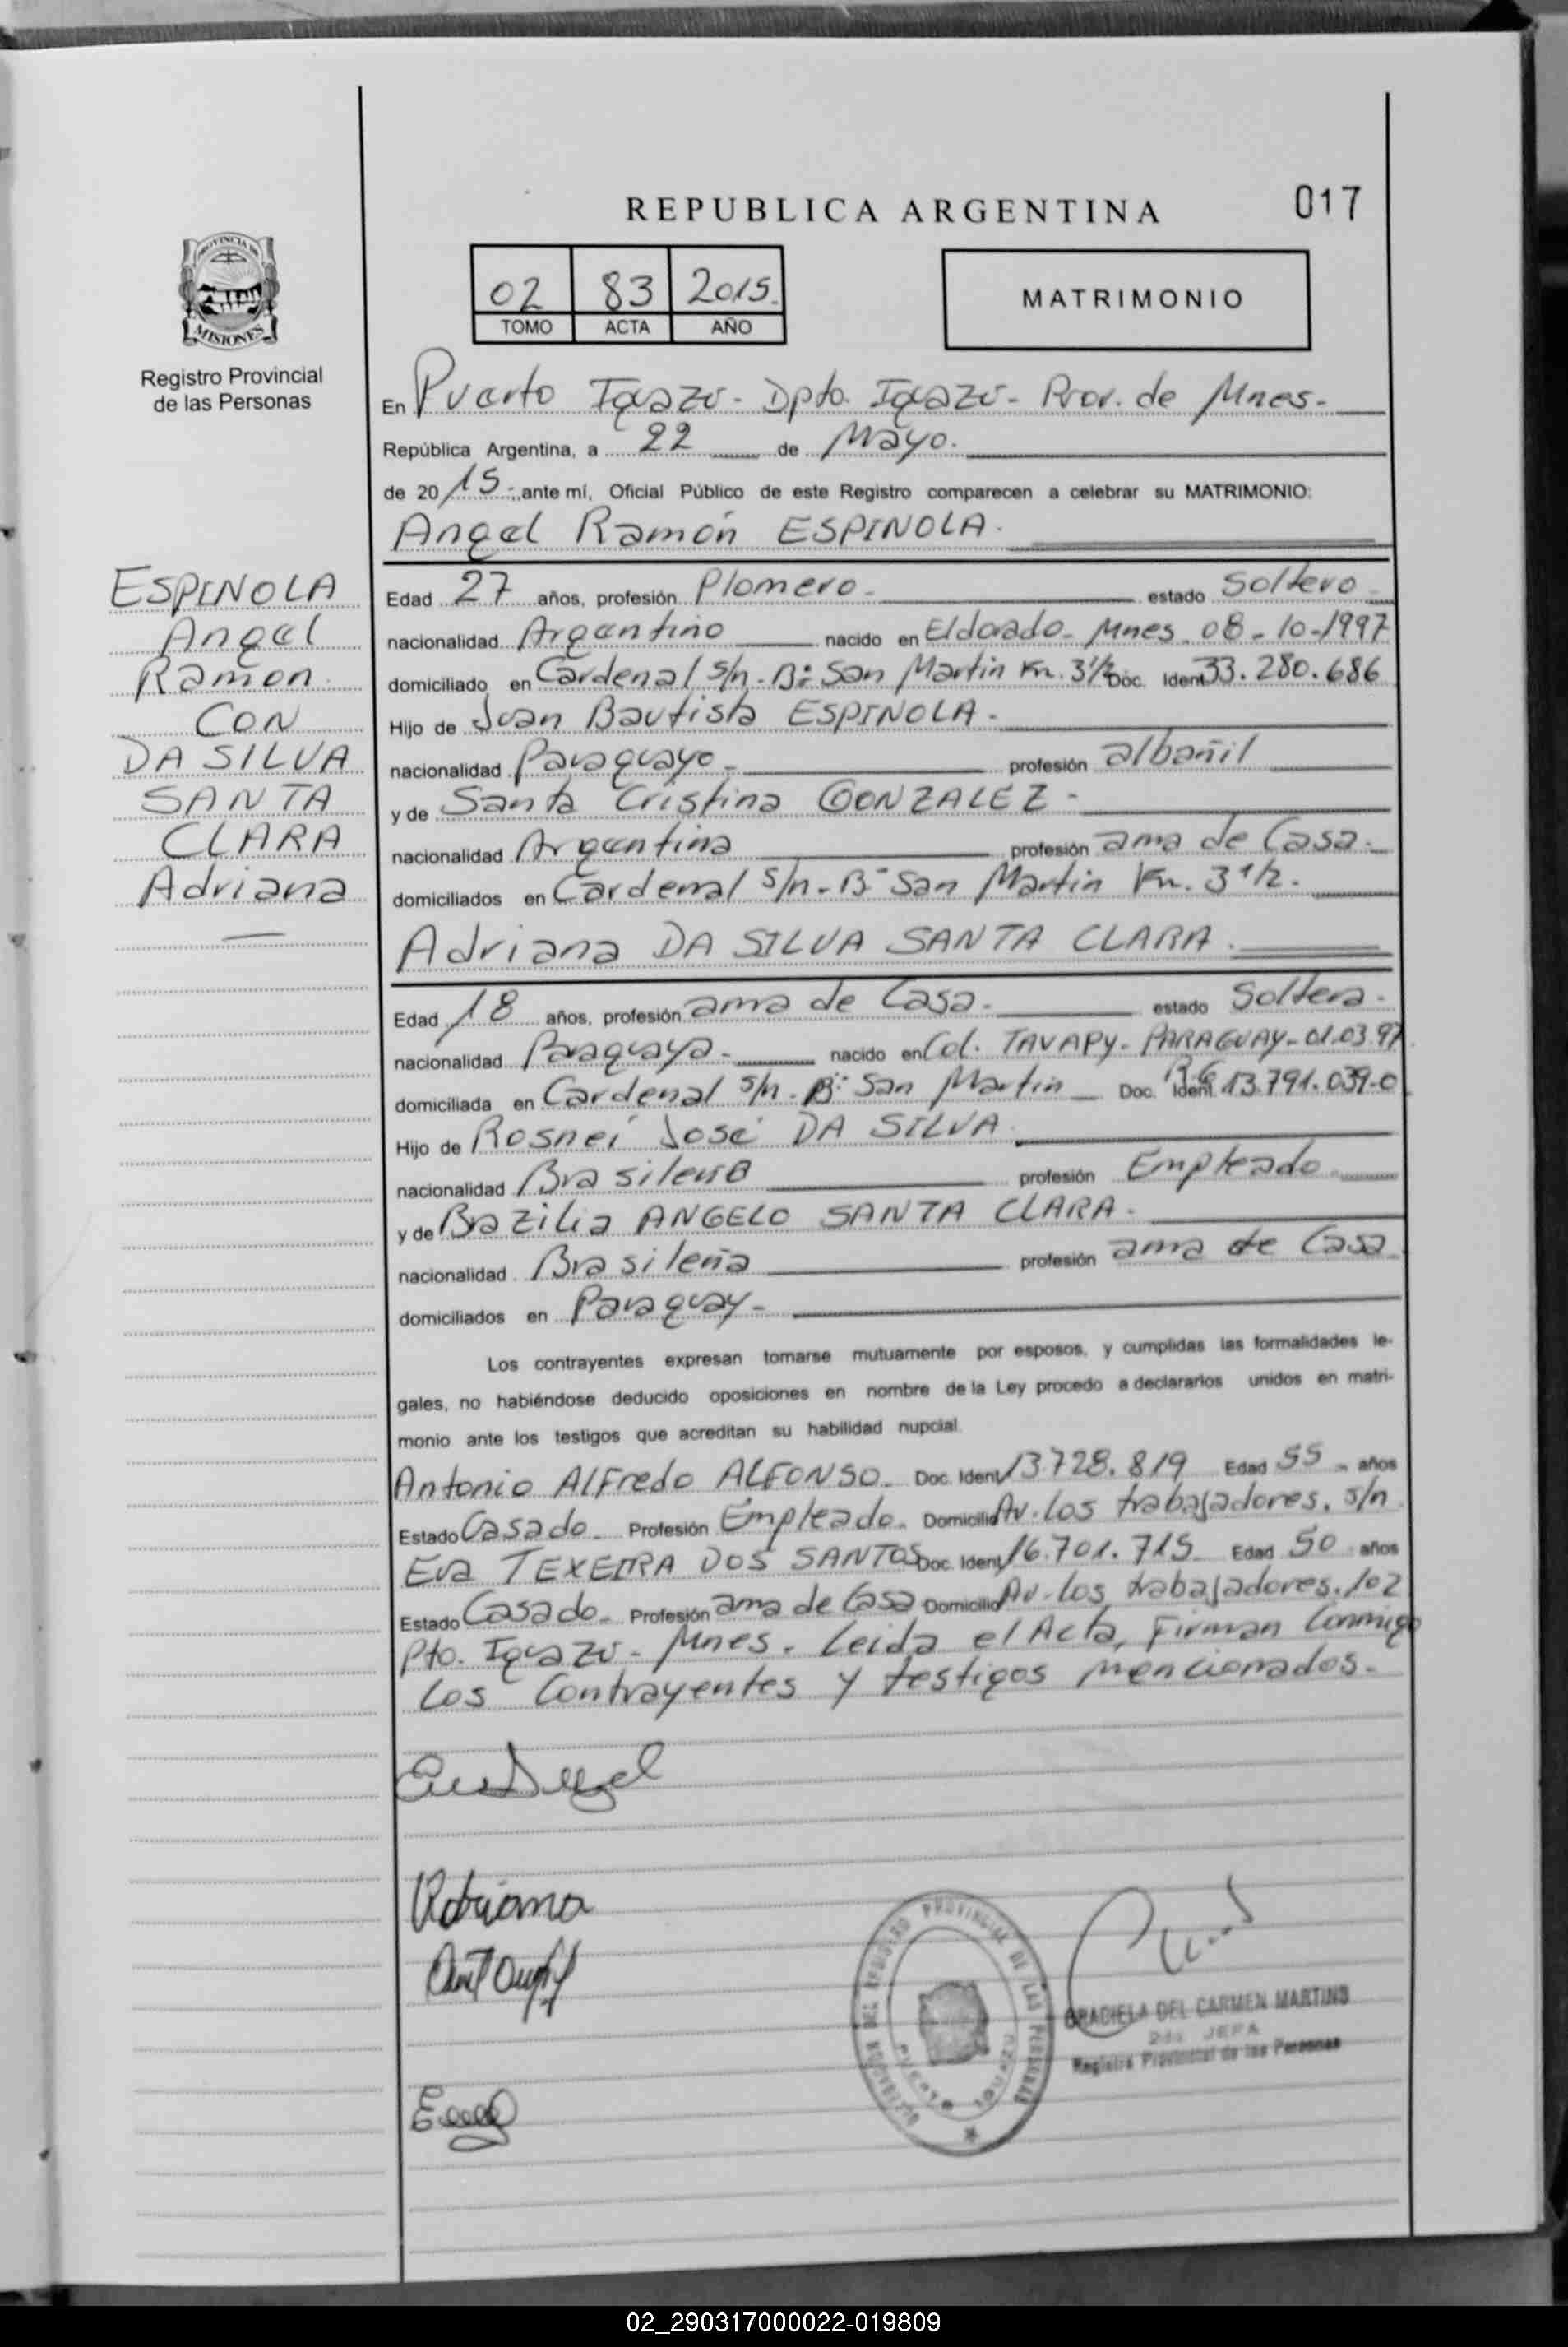 REPUBLICA ARGENTINA
017
PROVINCIA DE
MISIONES
Registro Provincial
de las Personas
02 83 2015.
TOMO ACTA AÑO
MATRIMONIO
En Puerto Iguazú - Dpto. Iguazú - Prov. de Mnes. -
República Argentina, a 22 de Mayo.
de 20 15 -, ante mí, Oficial Público de este Registro comparecen a celebrar su MATRIMONIO:
Angel Ramón ESPINOLA.
ESPINOLA
Angel
Ramon.
CON
DA SILVA
SANTA
CLARA
Adriana
Edad 27 años, profesión Plomero - estado Soltero -
nacionalidad Argentino nacido en Eldorado - Mnes. 08 - 10 - 1997
domiciliado en Cardenal s/n - Bº San Martin Km. 3 1/2 Doc. Ident 33.280.686
Hijo de Juan Bautista ESPINOLA -
nacionalidad Paraguayo - profesión albañil
y de Santa Cristina GONZALEZ -
nacionalidad Argentina profesión ama de Casa. -
domiciliados en Cardenal s/n - Bº San Martin Km. 3 1/2 -
Adriana DA SILVA SANTA CLARA.
Edad 18 años, profesión ama de Casa - estado Soltera -
nacionalidad Paraguaya - nacido en Col. TAVAPY - PARAGUAY - 01.03.97
domiciliada en Cardenal s/n - Bº San Martin Doc. Ident R.G 13.791.039-0
Hijo de Rosnei José DA SILVA.
nacionalidad Brasileño profesión Empleado
y de Brazilia ANGELO SANTA CLARA -
nacionalidad Brasileña profesión ama de Casa
domiciliados en Paraguay -
Los contrayentes expresan tomarse mutuamente por esposos, y cumplidas las formalidades le-
gales, no habiéndose deducido oposiciones en nombre de la Ley procedo a declararlos unidos en matri-
monio ante los testigos que acreditan su habilidad nupcial.
Antonio Alfredo ALFONSO. Doc. Ident 13.728.819 Edad 55 años
Estado Casado - Profesión Empleado - Domicilio Av. los trabajadores. s/n
Eva TEXEIRA DOS SANTOS Doc. Ident 16.701.715 Edad 50 años
Estado Casado - Profesión ama de Casa Domicilio Av. los trabajadores. 102
Pto. Iguazú - Mnes. Leida el Acta, Firman Conmigo
los Contrayentes y testigos mencionados -
Adriana
PROVINCIAL DE LAS PERSONAS
GRACIELA DEL CARMEN MARTINS
2da JEFA
Registro Provincial de las Personas
02_290317000022-019809